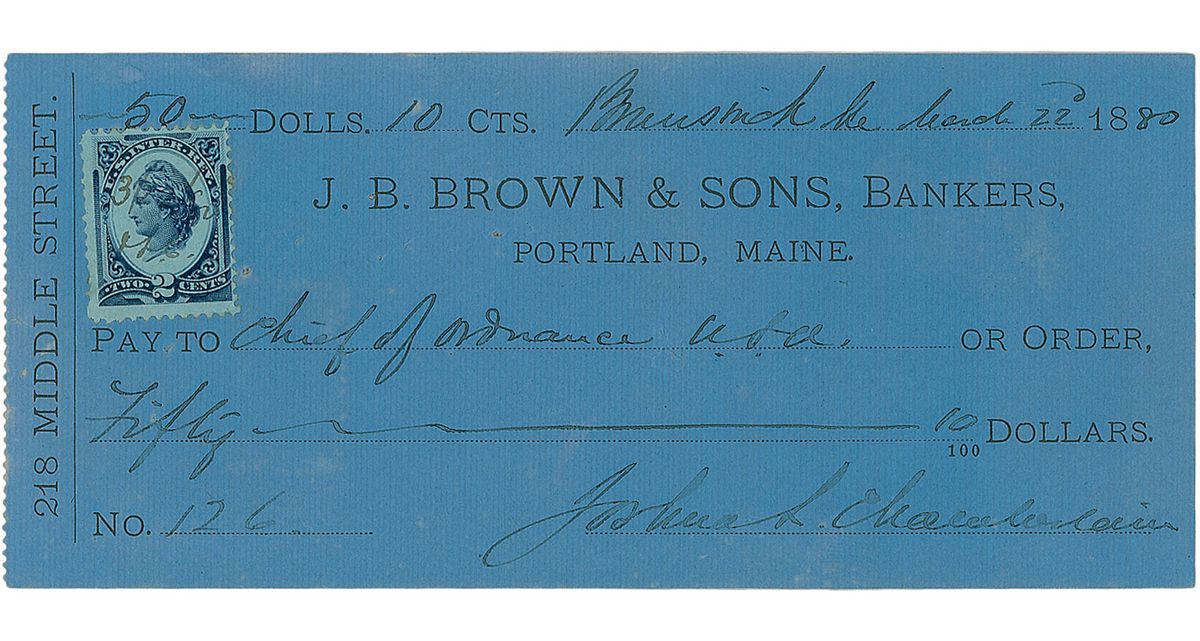 218 MIDDLE STREET.
50 DOLLS. 10 CTS. Brunswick Me March 22d 1880
U.S. INTER. REV.
TWO 2 CENTS
J. B. BROWN & SONS, BANKERS,
PORTLAND, MAINE.
PAY TO Chief of Ordnance U.S.A. OR ORDER,
Fifty 10/100 DOLLARS.
NO. 126 Joshua L. Chamberlain